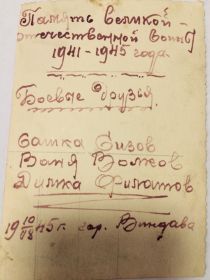 Память великой -
отечественной воины
1941 - 1945 года.
Боевые друзья.
Сашка Сизов
Ваня Волков
Димка Филатов
19 10/VIII 45 г. гор. Виндава